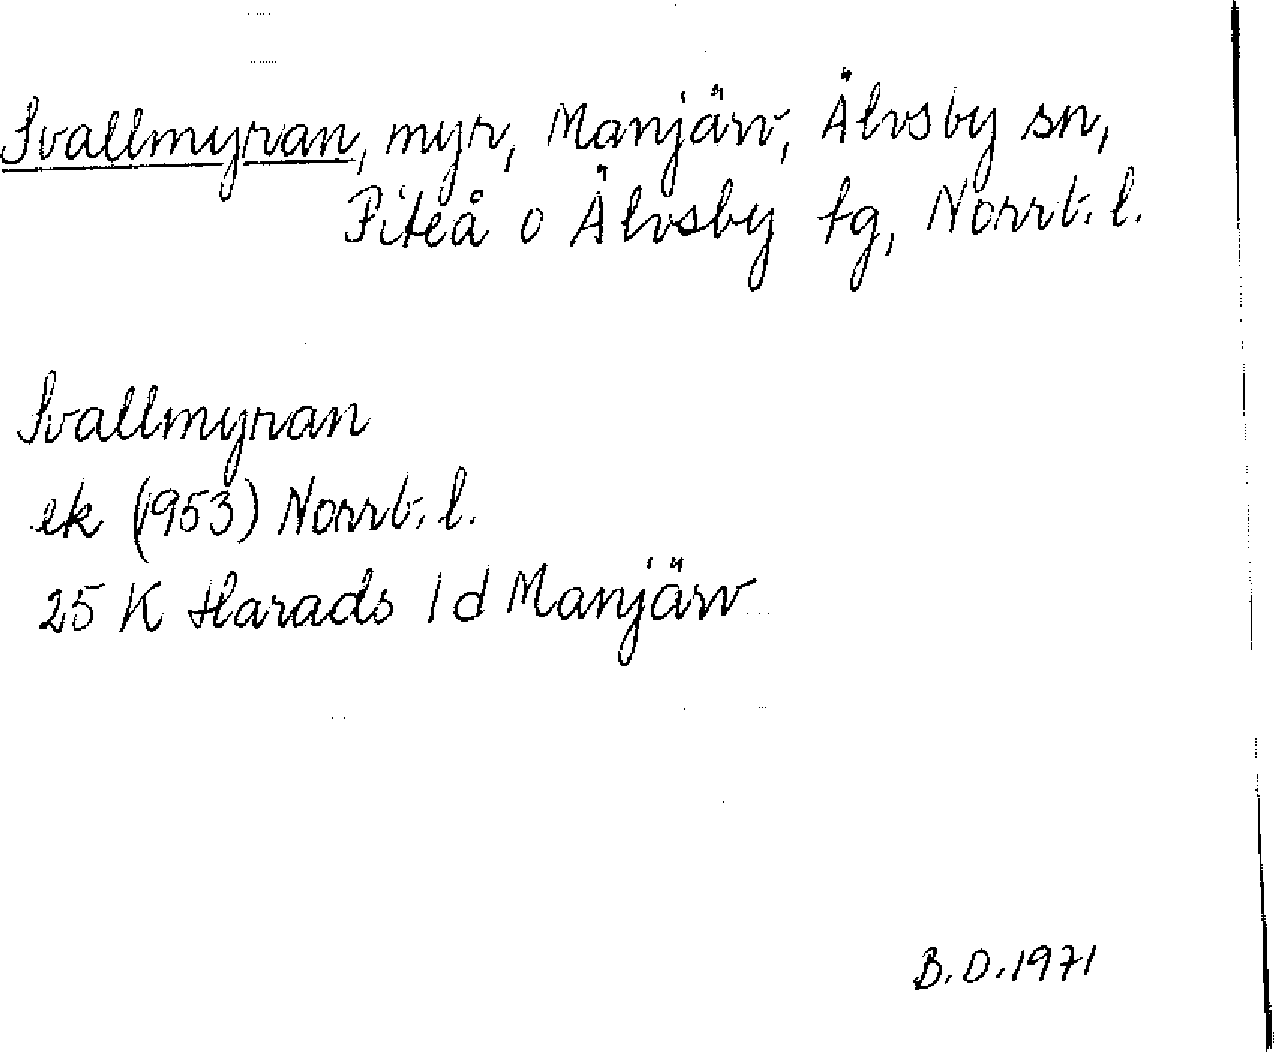 Svallmyran, myr, Manjärv, Älvsby sn,
Piteå o Älvsby tg, Norrb. l.
Svallmyran
ek (1953) Norrb. l.
25 K Harads 1 d Manjärv
B. D. 1971